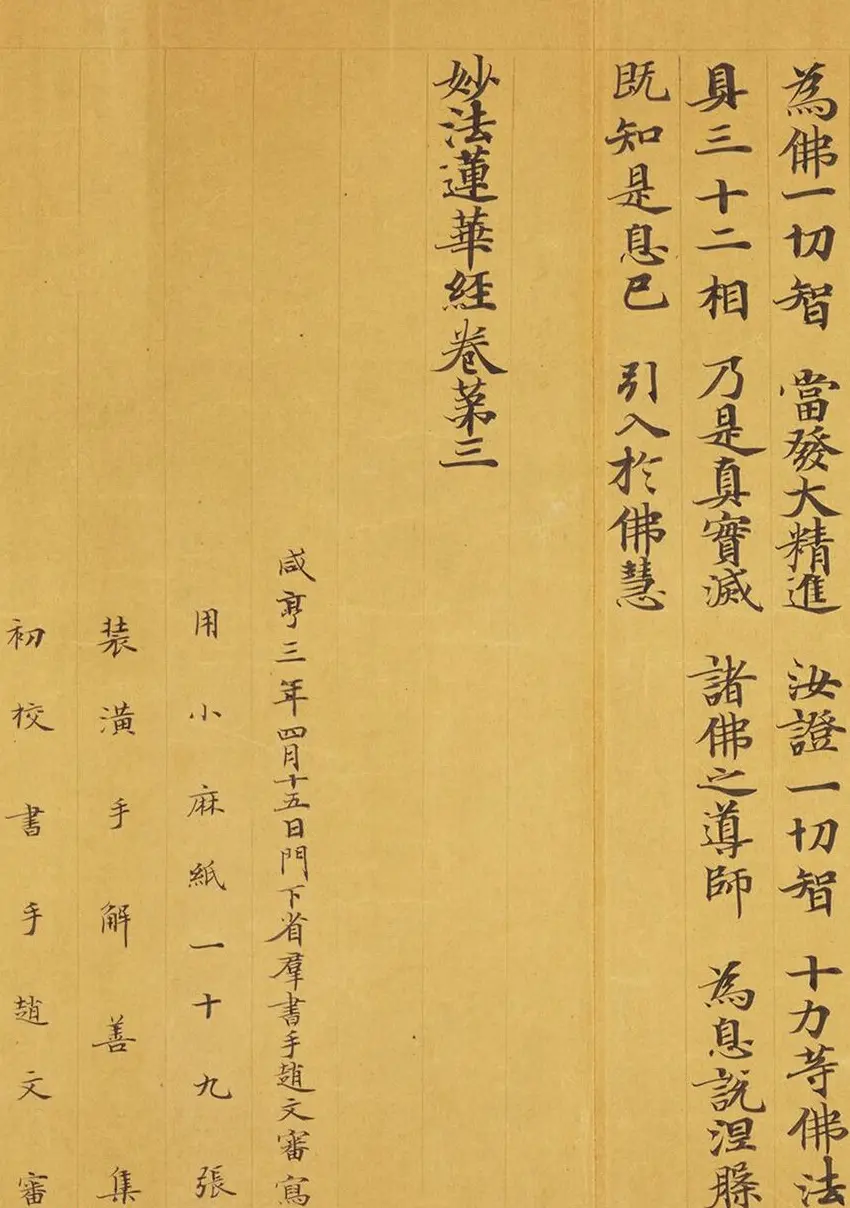 為佛一切智　當發大精進　汝證一切智　十力等佛法
身三十二相　乃是真實滅　諸佛之導師　為息說涅槃
既知是息已　引入於佛慧
妙法蓮華經卷第三
咸亨三年四月十五日門下省羣書手趙文審寫
用小麻紙一十九張
裝潢手解善集
初校書手趙文審